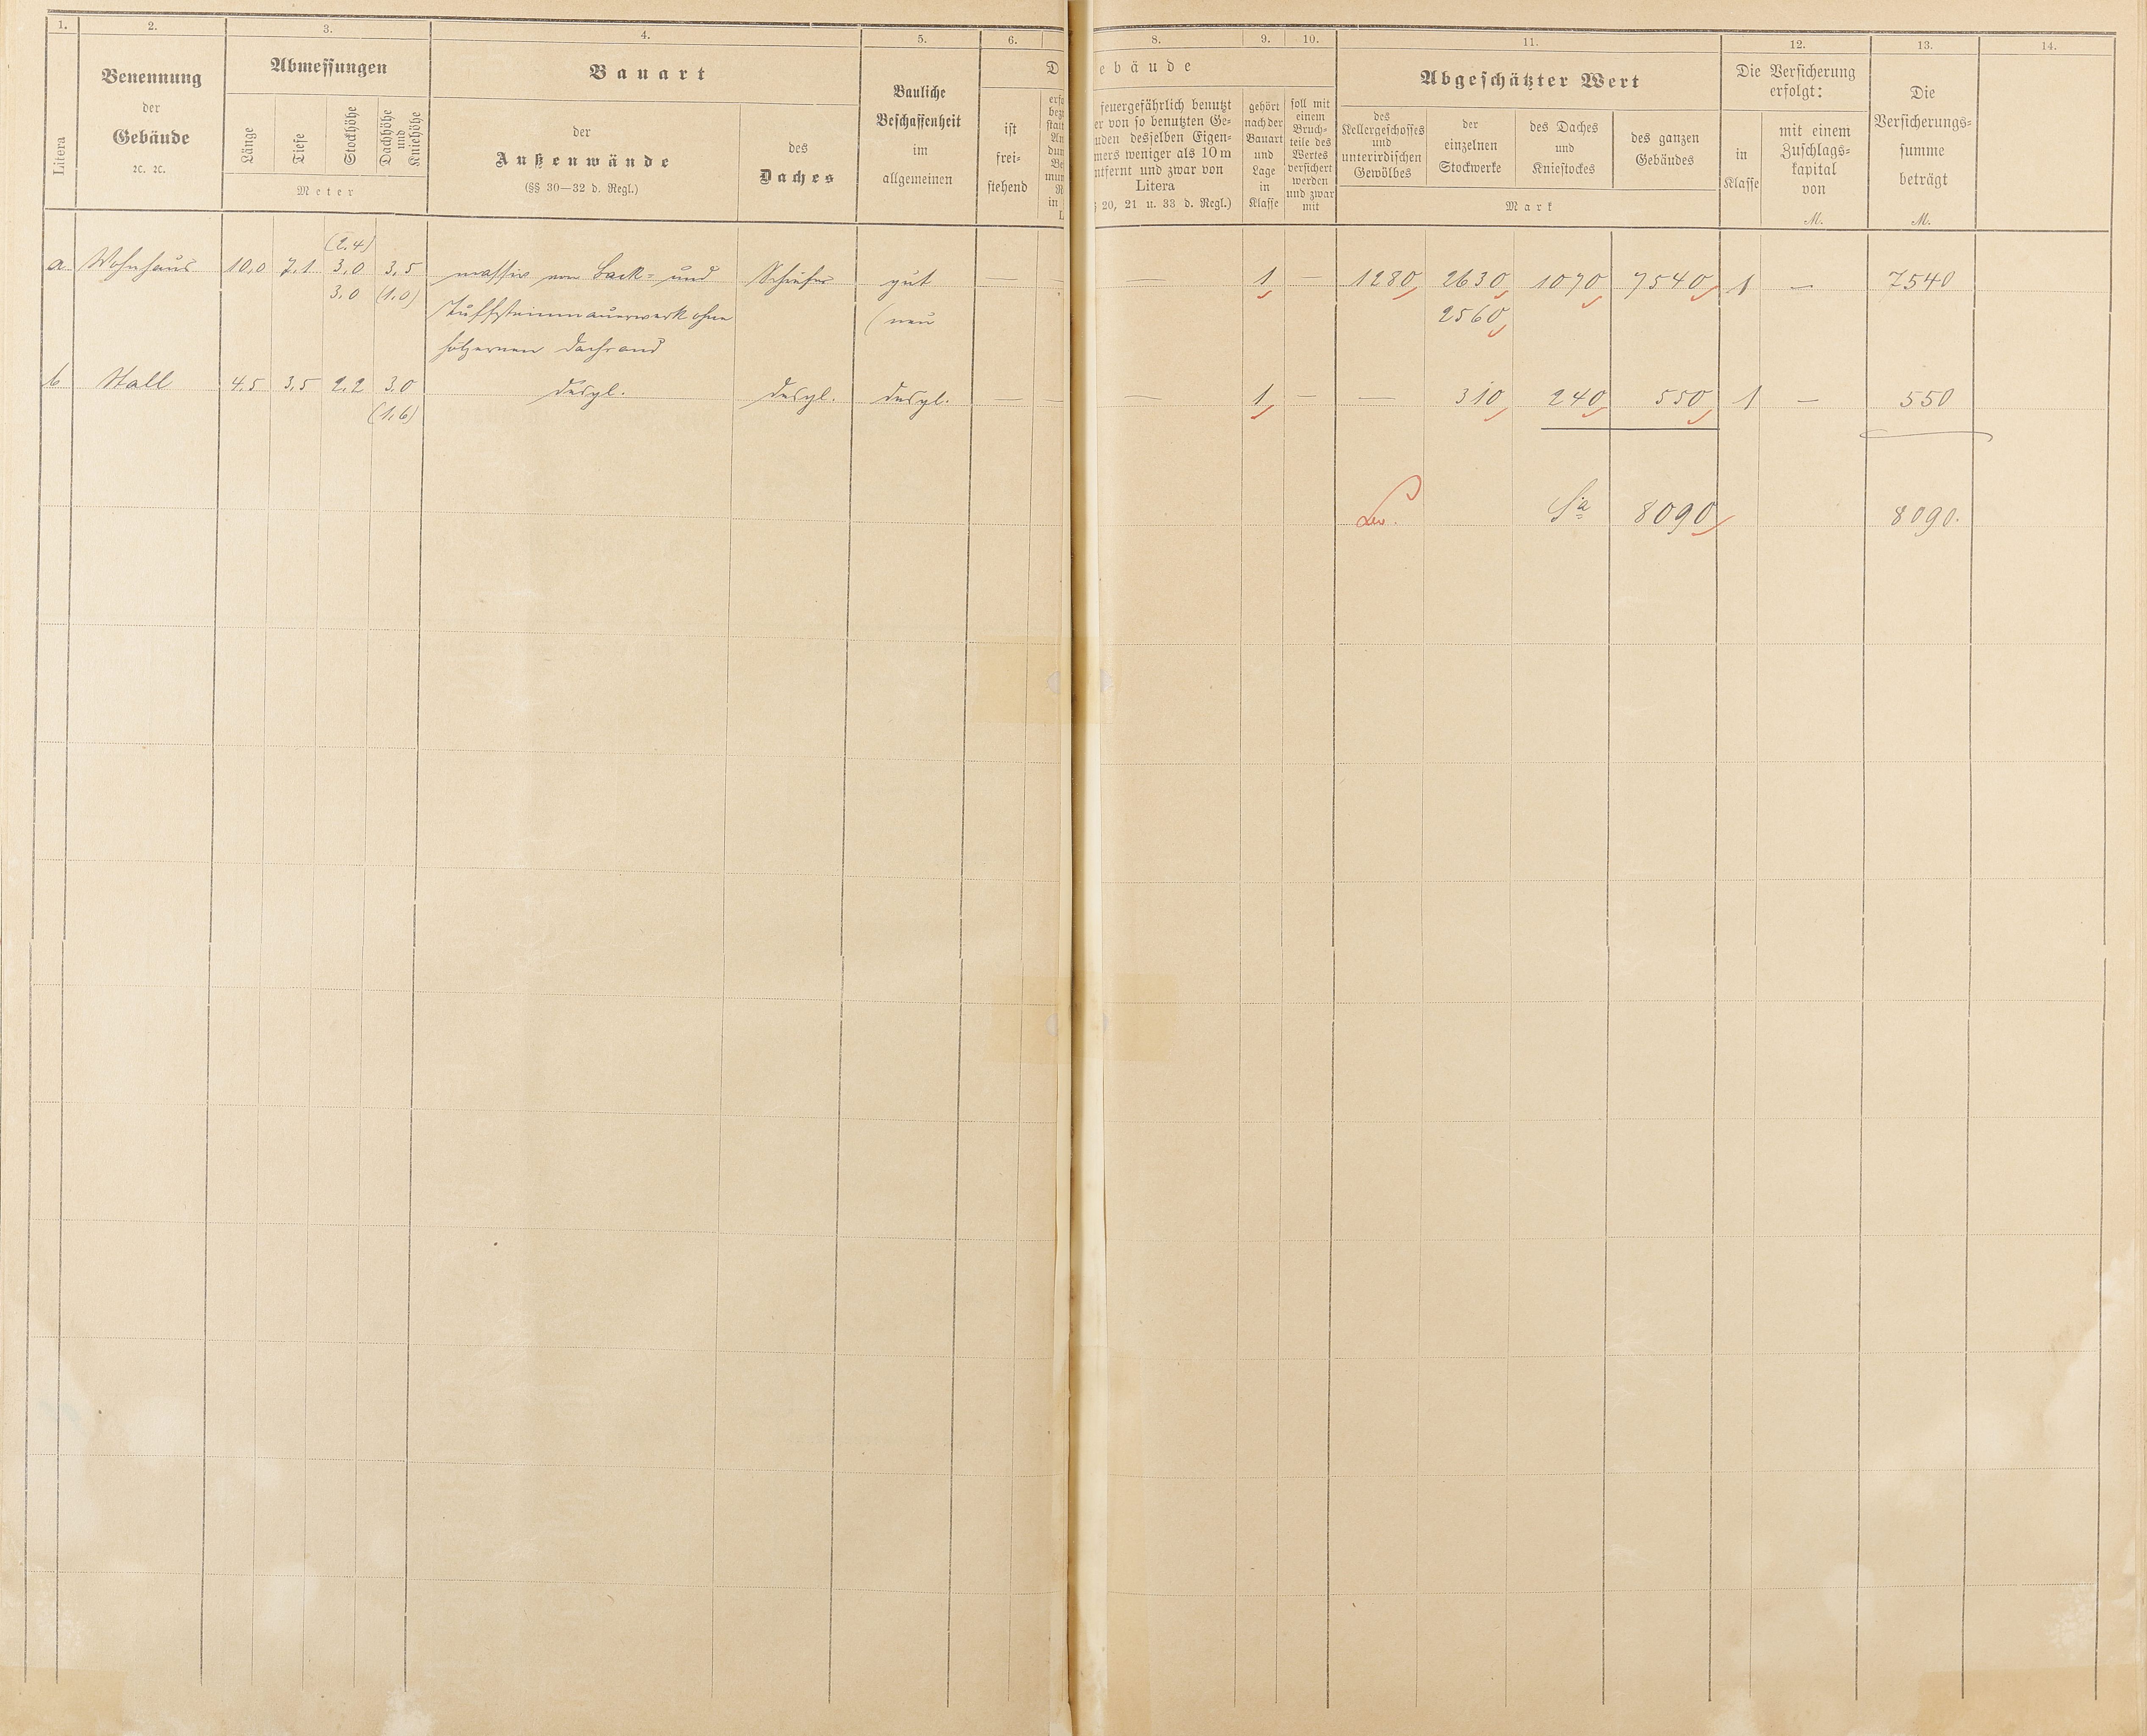 1. 2. 3. 4. 5. 6. 8. 9. 10. 11. 12. 13. 14.
Litera
Benennung
der
Gebäude
ꝛc. ꝛc.
Abmessungen
Länge
Tiefe
Stockhöhe
Dachhöhe
und
Kniehöhe
Meter
Bauart
der
Außenwände
(§§ 30—32 d. Regl.)
des
Daches
Bauliche
Beschaffenheit
im
allgemeinen
D
ist
frei-
stehend
ebäude
feuergefährlich benutzt
er von so benutzten Ge-
uden desselben Eigen-
mers weniger als 10 m
ntfernt und zwar von
Litera
§ 20, 21 u. 33 d. Regl.)
gehört
nach der
Bauart
und
Lage
in
Klasse
soll mit
einem
Bruch-
teile des
Wertes
versichert
werden
und zwar
mit
Abgeschätzter Wert
des
Kellergeschosses
und
unterirdischen
Gewölbes
der
einzelnen
Stockwerke
des Daches
und
Kniestockes
des ganzen
Gebäudes
Mark
Die Versicherung
erfolgt:
in
Klasse
mit einem
Zuschlags-
kapital
von
M.
Die
Versicherungs-
summe
beträgt
M.
(2.4)
a Wohnhaus 10,0 7,1 3,0 3,5 massiv von Back- und Schiefer gut — — — 1 — 1280 2630 1070 7540 1 — 7540
3,0 (1,0) Tuffsteinmauerwerk ohne (neu 2560
hölzernen Dachrand
b Stall 4,5 3,5 2,2 3,0 desgl. desgl. desgl. — — — 1 — — 310 240 550 1 — 550
(1,6)
Sa 8090 8090.